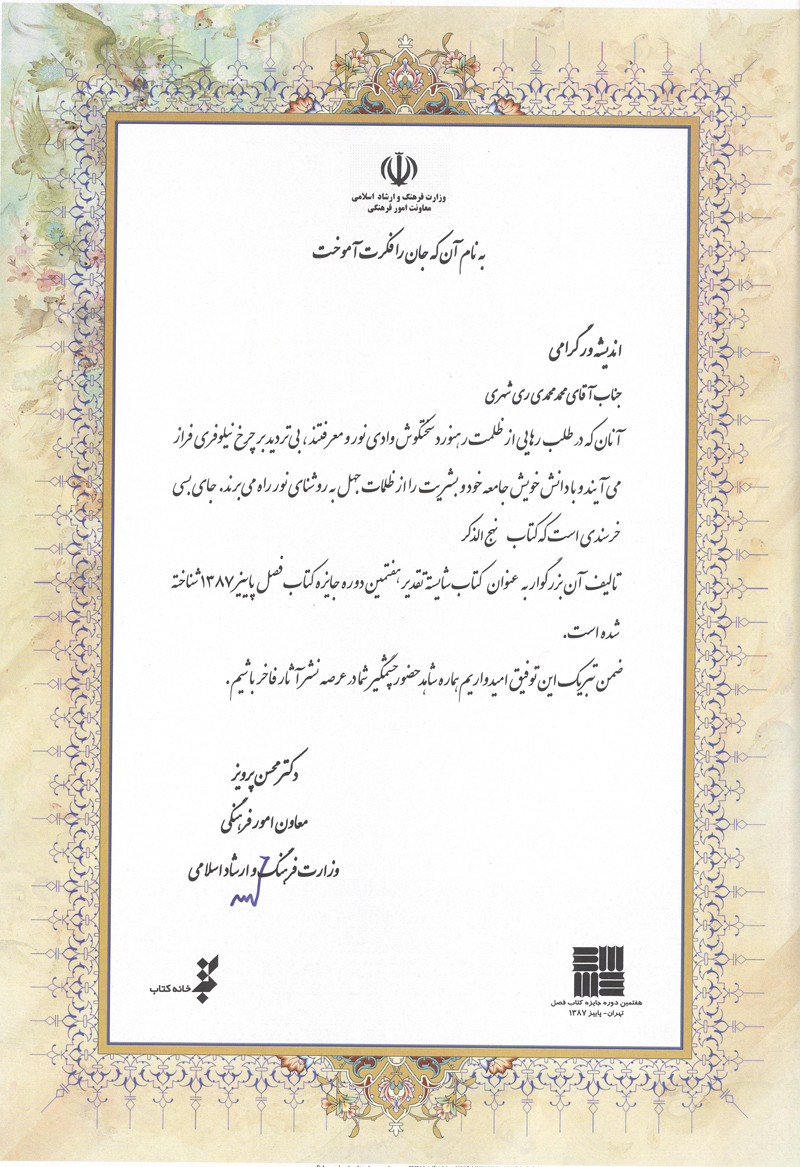 وزارت فرهنگ و ارشاد اسلامی
معاونت امور فرهنگی
به نام آن که جان را فکرت آموخت
اندیشه ور گرامی
جناب آقای محمد محمدی ری شهری
آنان که در طلب رهایی از ظلمت رهنورد سختکوش وادی نور و معرفتند، بی تردید بر چرخ نیلوفری فراز
می آیند و با دانش خویش جامعه خود و بشریت را از ظلمات جهل به روشنای نور راه می برند. جای بسی
خرسندی است که کتاب نهج الذکر
تالیف آن بزرگوار به عنوان کتاب شایسته تقدیر هفتمین دوره جایزه کتاب فصل پاییز ۱۳۸۷ شناخته
شده است.
ضمن تبریک این توفیق امیدواریم هماره شاهد حضور چشمگیر شما در عرصه نشر آثار فاخر باشیم.
دکتر محسن پرویز
معاون امور فرهنگی
وزارت فرهنگ و ارشاد اسلامی
خانه کتاب
هفتمین دوره جایزه کتاب فصل
تهران- پاییز ۱۳۸۷